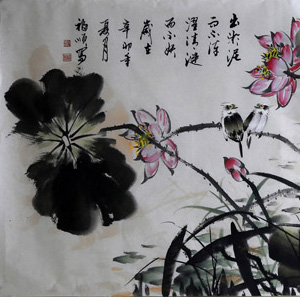 出淤泥
而不染
濯清涟
而不妖
岁在
辛卯年
夏月